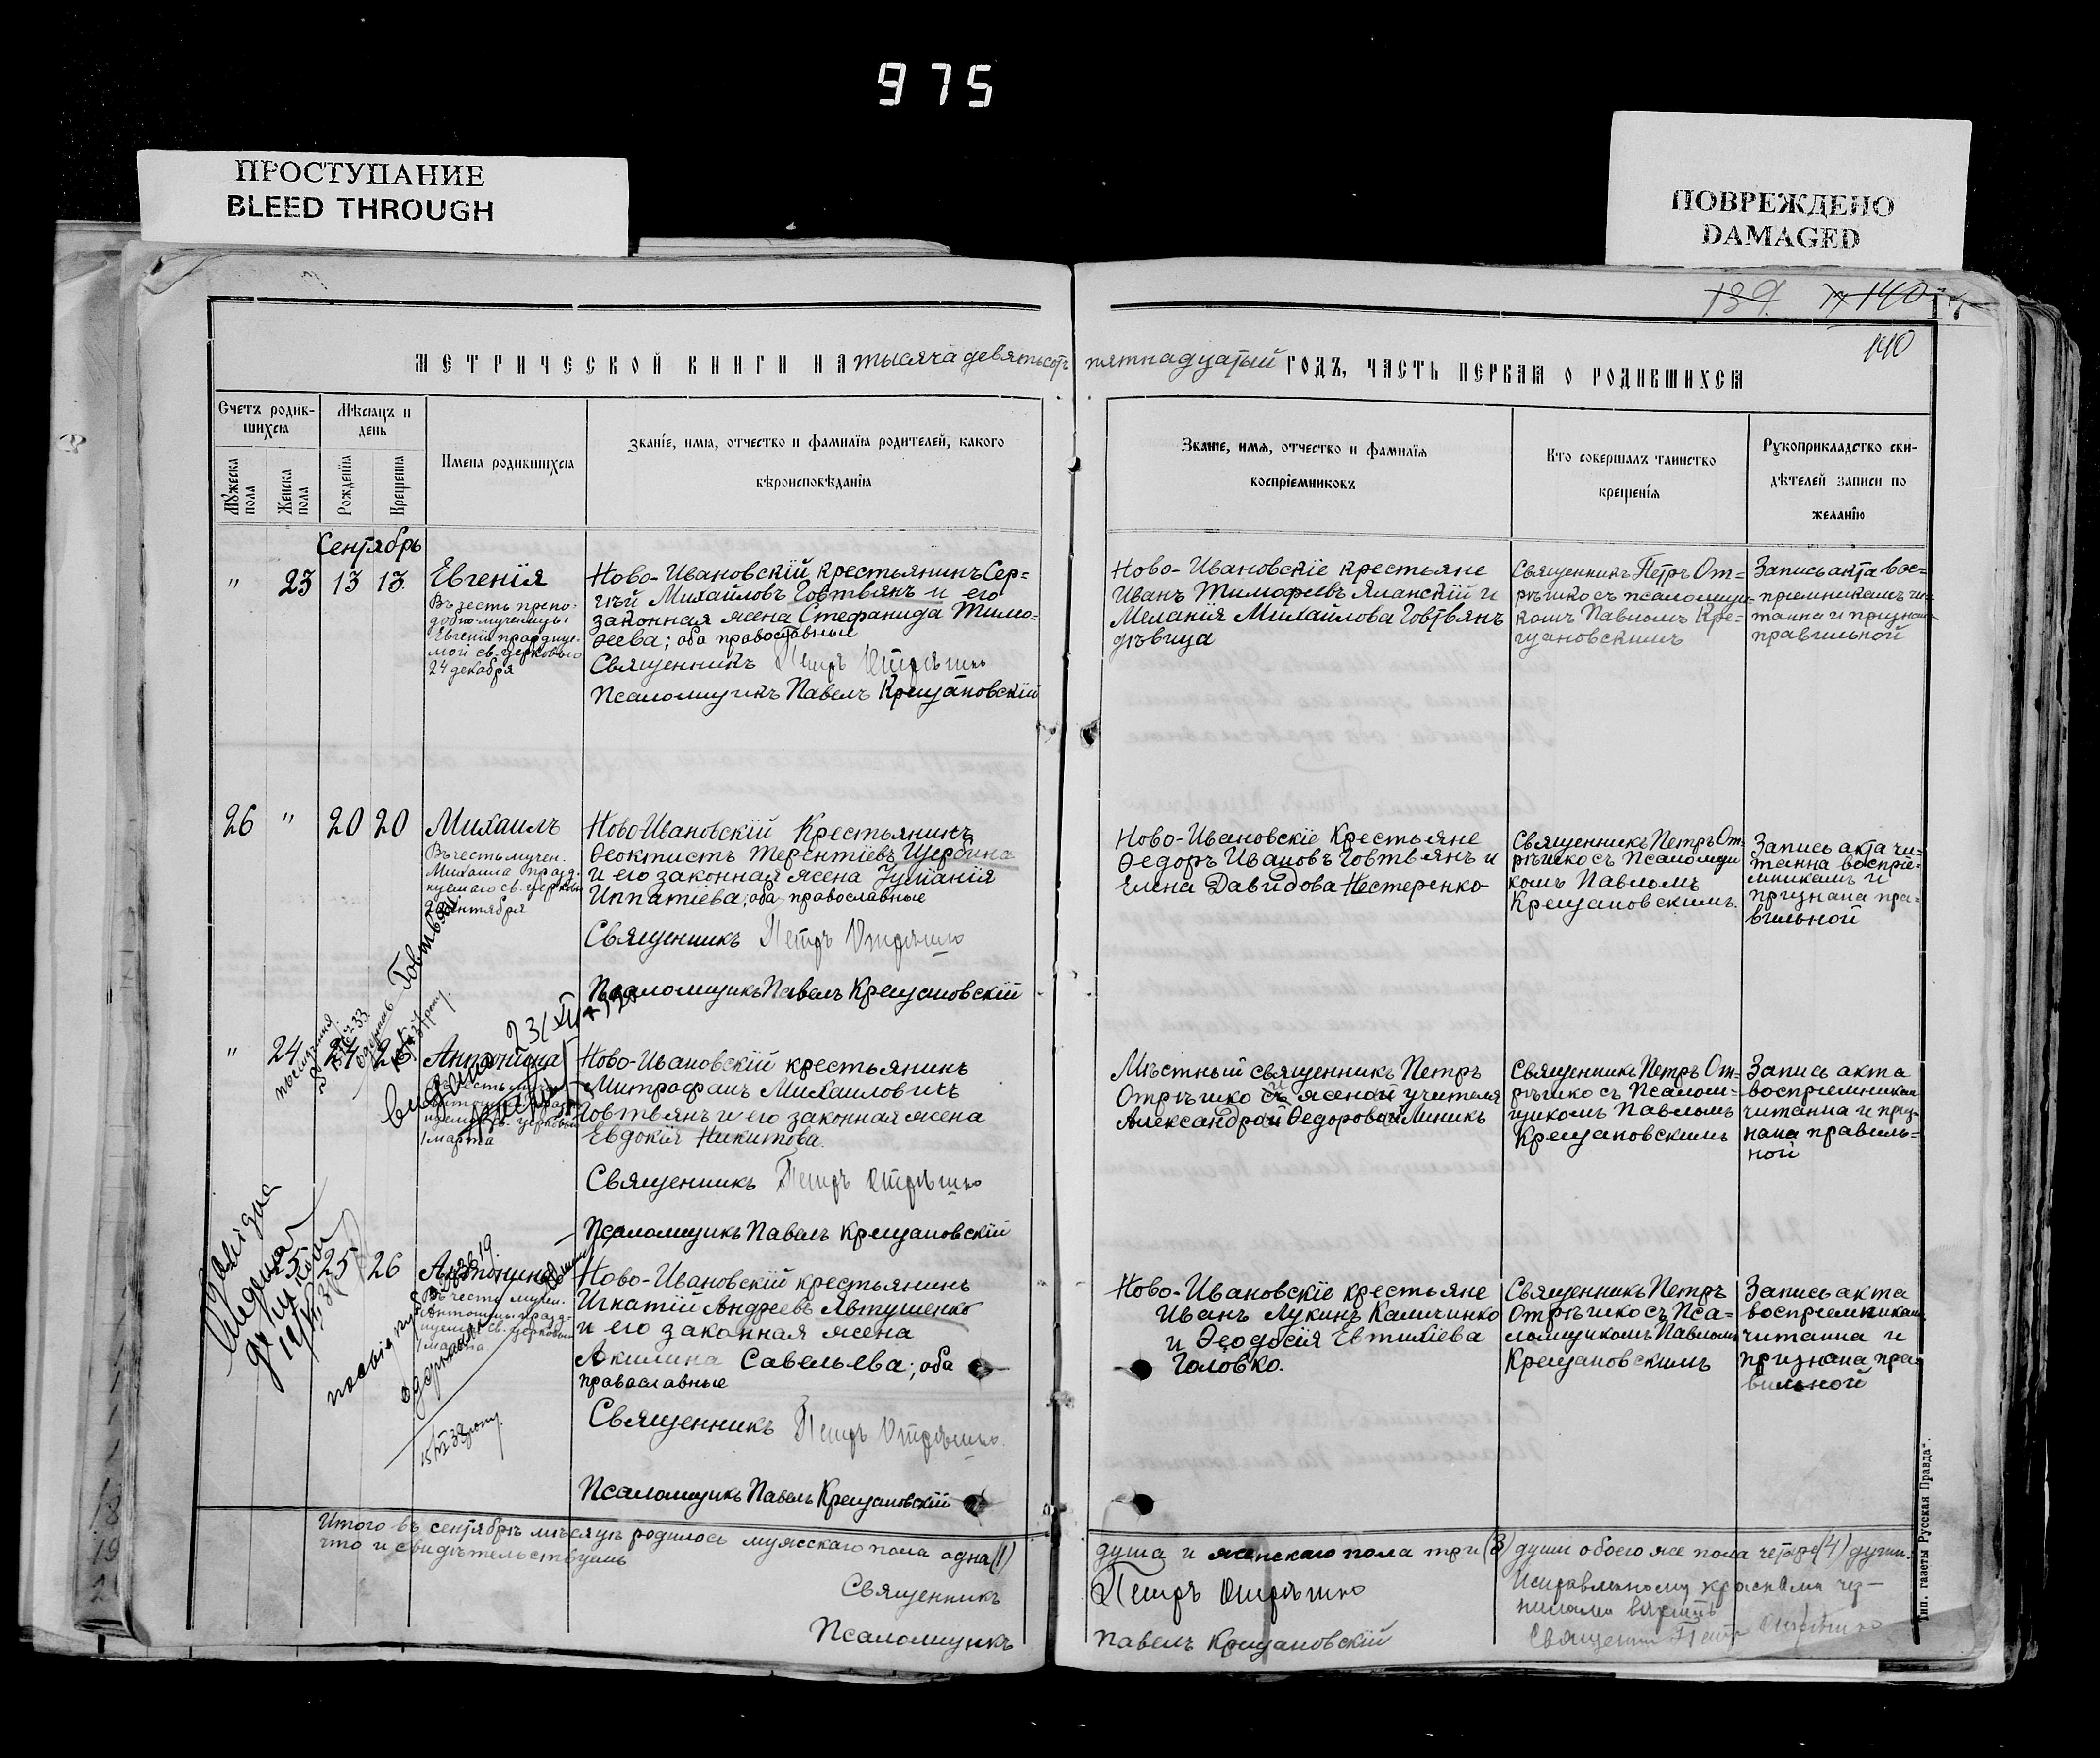 975
ПРОСТУПАНИЕ
BLEED THROUGH
ПОВРЕЖДЕНО
DAMAGED
139. 140
140
МЕТРИЧЕСКОЙ КНИГИ НА тысяча девятьсотъ пятнадцатый ГОДЪ, ЧАСТЬ ПЕРВАЯ О РОДИВШИХСЯ
Счетъ родив-
шихся
Мѣсяцъ и
день
Мужеска
пола
Женска
пола
Рожденія
Крещенія
Имена родившихся
Званіе, имя, отчество и фамилія родителей, какого
вѣроисповѣданія
Званіе, имя, отчество и фамилія
воспріемниковъ
Кто совершалъ таинство
крещенія
Рукоприкладство сви-
дѣтелей записи по
желанію
Сентябрь
" 23 13 13.
Евгенія
Въ честь препо-
добно-мученицы
Евгеніи праздnуе-
мой св. церковью
24 декабря
Ново-Ивановскій крестьянинъ Сер-
гѣй Михайловъ Говтвянъ и его
законная жена Стефанида Тимо-
ѳеева; оба православные
Священникъ Петръ Отрѣшко
Псаломщикъ Павелъ Крещановскій
Ново-Ивановскіе крестьяне
Иванъ Тимофеевъ Яланскій и
Меланія Михайлова Говтвянъ
дѣвица
Священникъ Петръ От-
рѣшко съ псаломщи-
комъ Павломъ Кре-
щановскимъ
Запись акта вос-
пріемникамъ чи-
танна и признан
правильной
26 " 20 20
Михаилъ
Въ честь мучен.
Михаила празд-
нуемаго св. церковью
сентября
Ново Ивановскій Крестьянинъ
Ѳеоктистъ Терентіевъ Щербина
и его законная жена Іуліанія
Ипатіева; оба православные
Священникъ Петръ Отрѣшко
Псаломщикъ Павелъ Крещановскій
Ново-Ивановскіе Крестьяне
Ѳедоръ Ивановъ Говтвянъ и
Елена Давидова Нестеренко
Священникъ Петръ От-
рѣшко съ Псаломщи
комъ Павломъ
Крещановскимъ.
Запись акта чи-
танна воспріе-
мникамъ и
признана пра-
вильной
Говтвян
видана 23/XII
" 24 24 26
Антонина
1 марта
Ново-Ивановскій крестьянинъ
Митрофанъ Михаиловичъ
Говтвянъ и его законная жена
Евдокія Никитова.
Священникъ Петръ Отрѣшко
Псаломщикъ Павелъ Крещановскій
Мѣстный священникъ Петръ
Отрѣшко съ женой учителя
Александрой Ѳедоровой Миникъ
Священникъ Петръ От-
рѣшко съ Псалом-
щикомъ Павломъ
Крещановскимъ
Запись акта
воспріемникам
читанна и приз-
нана правиль-
ной
25 25 26
Антонина
Въ честь мучен.
Антонины празд-
нуемой св. церковью
1 марта
Ново-Ивановскій крестьянинъ
Игнатій Андреевъ Явтушенко
и его законная жена
Акилина Савельева; оба
православные
Священникъ Петръ Отрѣшко.
Псаломщикъ Павелъ Крещановскій
Ново-Ивановскіе крестьяне
Иванъ Лукинъ Каличинко
и Ѳеодосія Евтихіева
Головко.
Священникъ Петръ
Отрѣшко съ Пса-
ломщикомъ Павломъ
Крещановскимъ
Запись акта
воспріемникам
читанна и
признана пра
вильной
Итого въ сентябрѣ мѣсяцѣ родилось мужскаго пола одна (1) душа и женскаго пола три (3) души обоего же пола четыре (4) души.
что и свидѣтельствуемъ
Священникъ Петръ Отрѣшко
Псаломщикъ Павелъ Крещановскій
Исправленному красными чер-
нилами вѣрить
Священник Петръ Отрѣшко
Тип. газеты "Русская Правда".